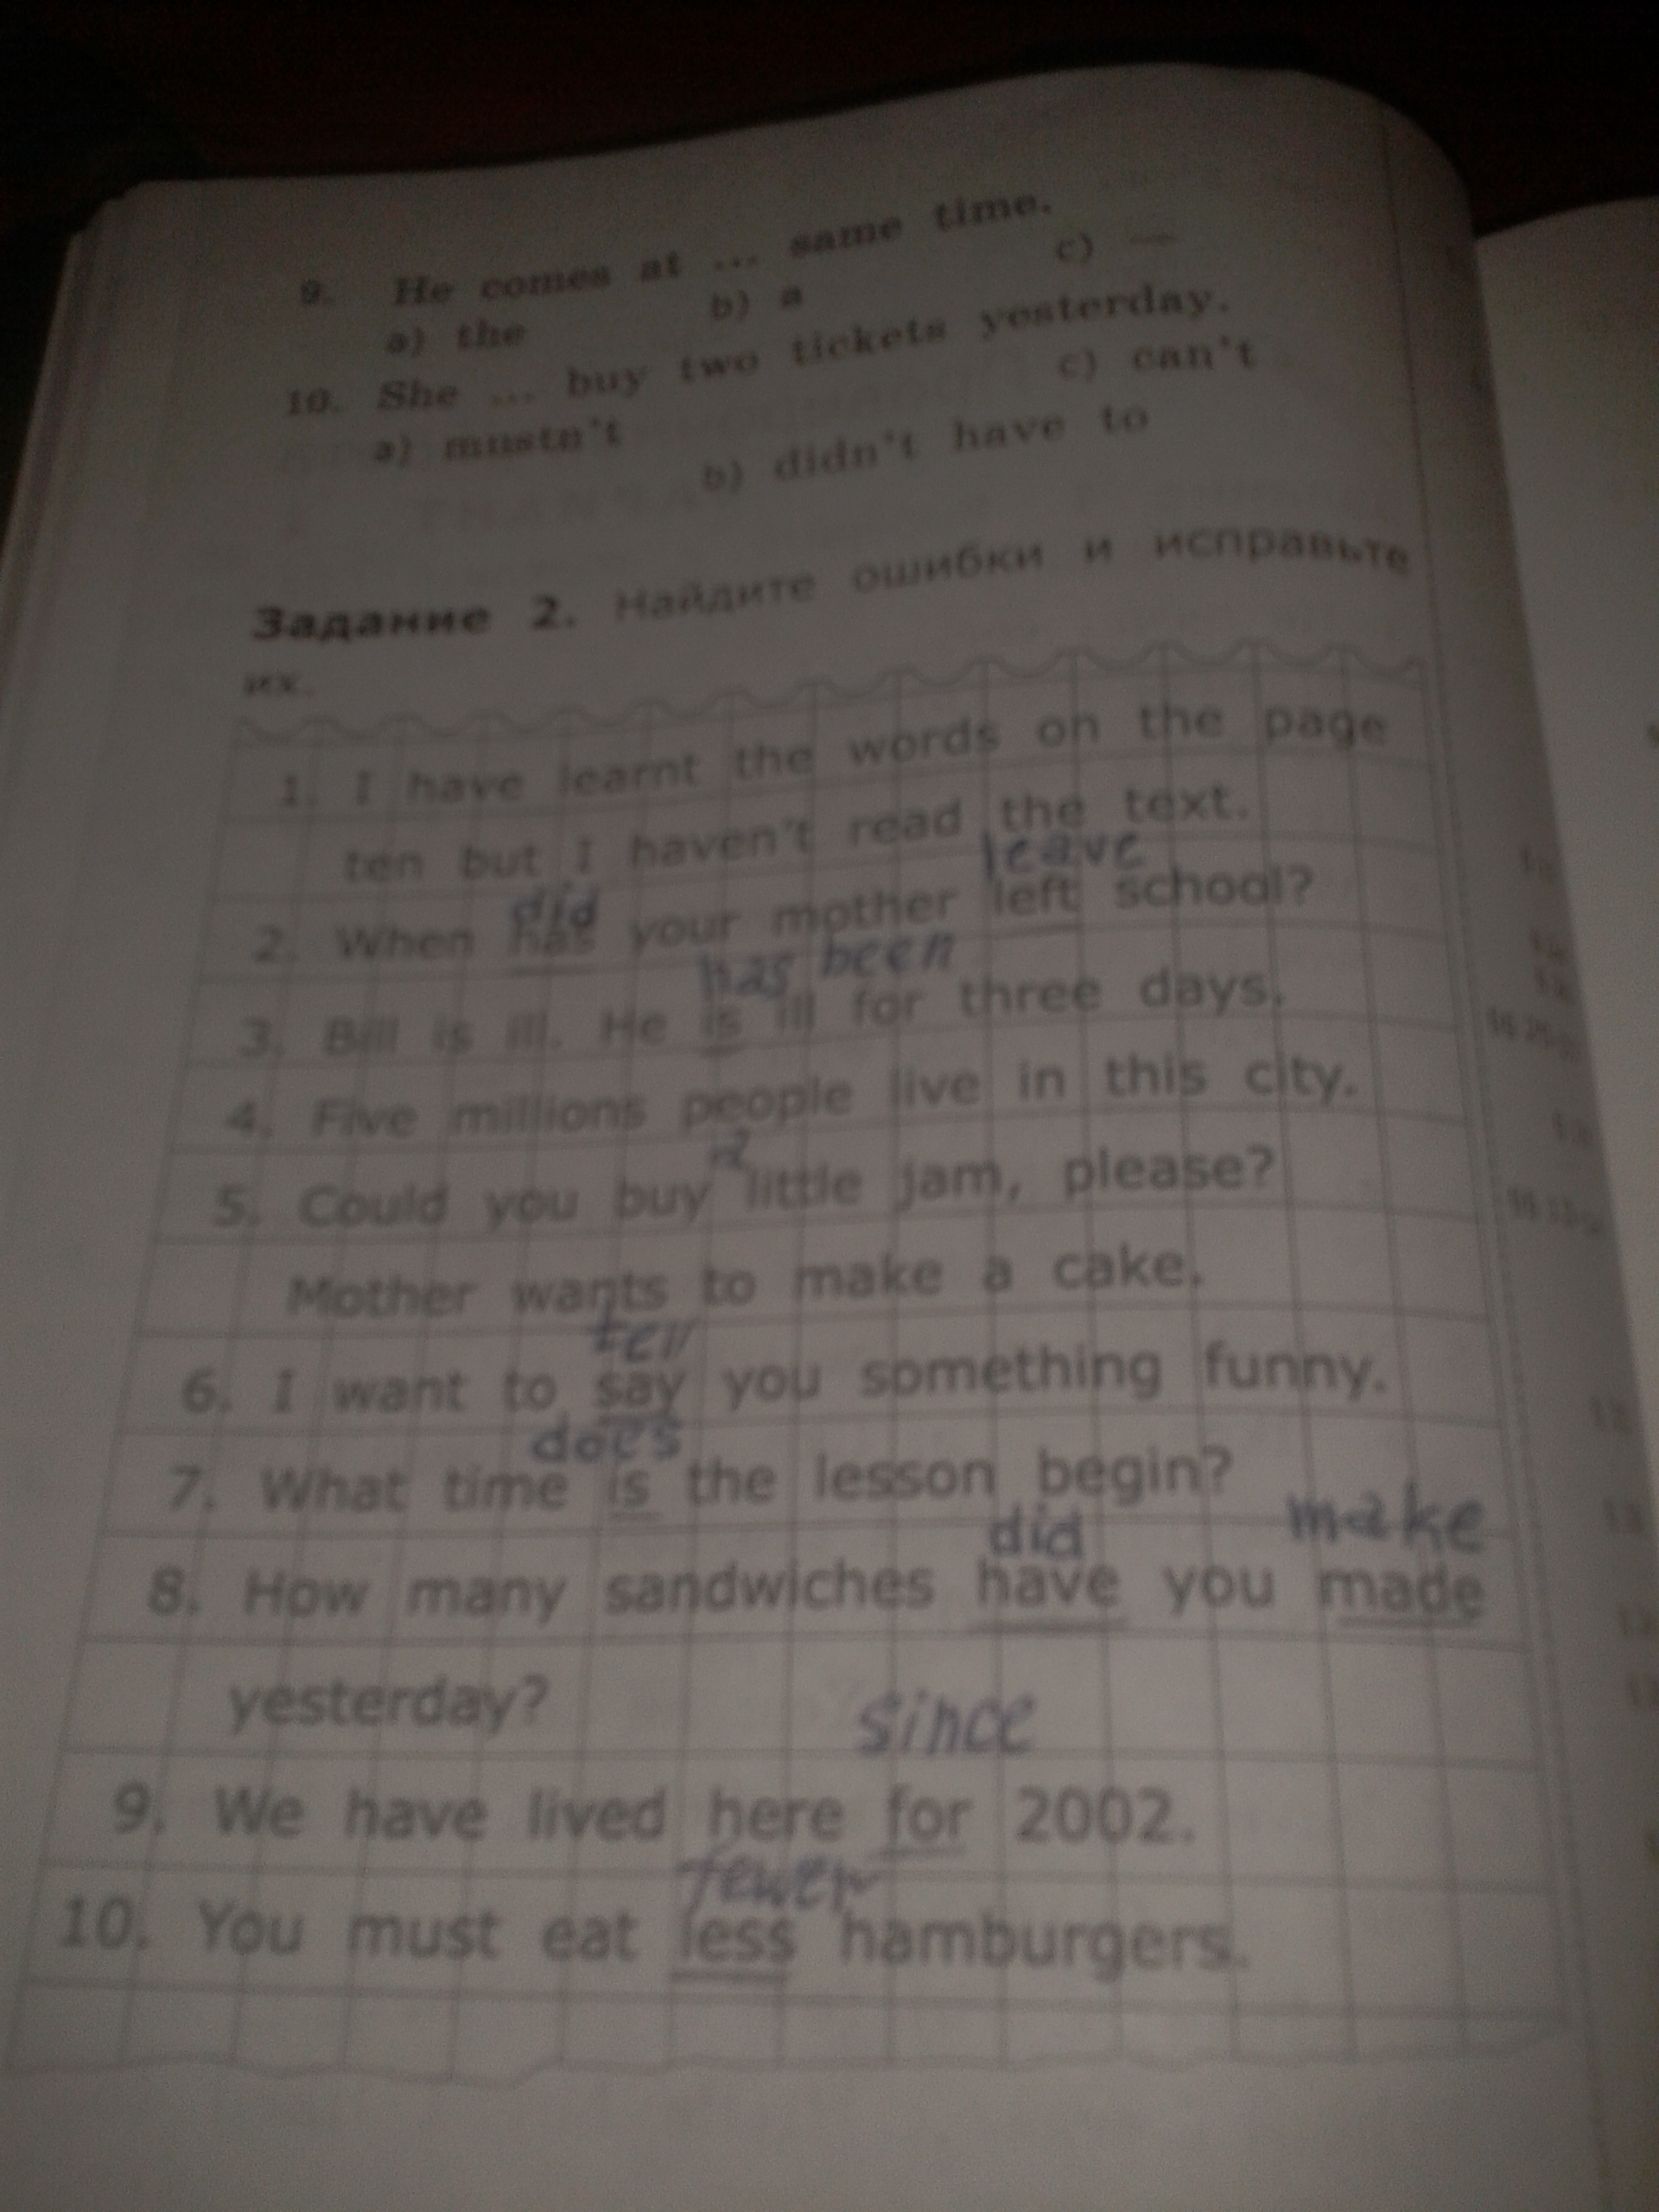 9. He comes at ... same time.
a) the b) a c) —
10. She ... buy two tickets yesterday.
a) mustn't b) didn't have to c) can't
Задание 2. Найдите ошибки и исправьте
их.
1. I have learnt the words on the page
ten but I haven't read the text.
did leave
2. When has your mother left school?
has been
3. Bill is ill. He is ill for three days.
4. Five millions people live in this city.
a
5. Could you buy little jam, please?
Mother wants to make a cake.
tell
6. I want to say you something funny.
does
7. What time is the lesson begin?
did make
8. How many sandwiches have you made
yesterday?
since
9. We have lived here for 2002.
fewer
10. You must eat less hamburgers.